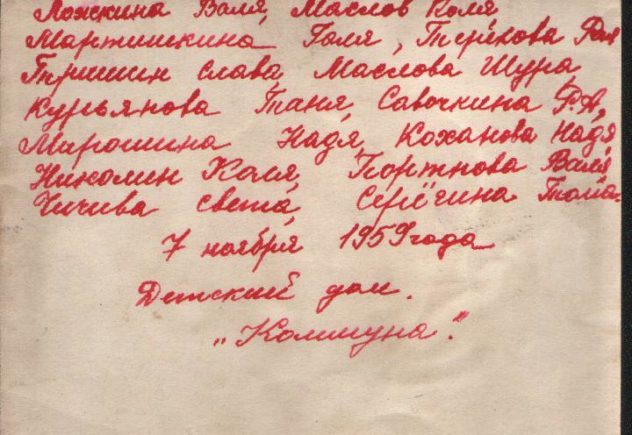 Ложкина Валя, Маслов Коля
Мартишкина Галя, Терёхова Рая
Гришин Слава, Маслова Шура,
Курьянова Таня, Савочкина Р.А,
Мирошина Надя, Коханова Надя
Николин Коля, Портнова Валя
Чичива Света, Серёгина Тома.
7 ноября 1959 года
Детский дом.
„Коммуна".